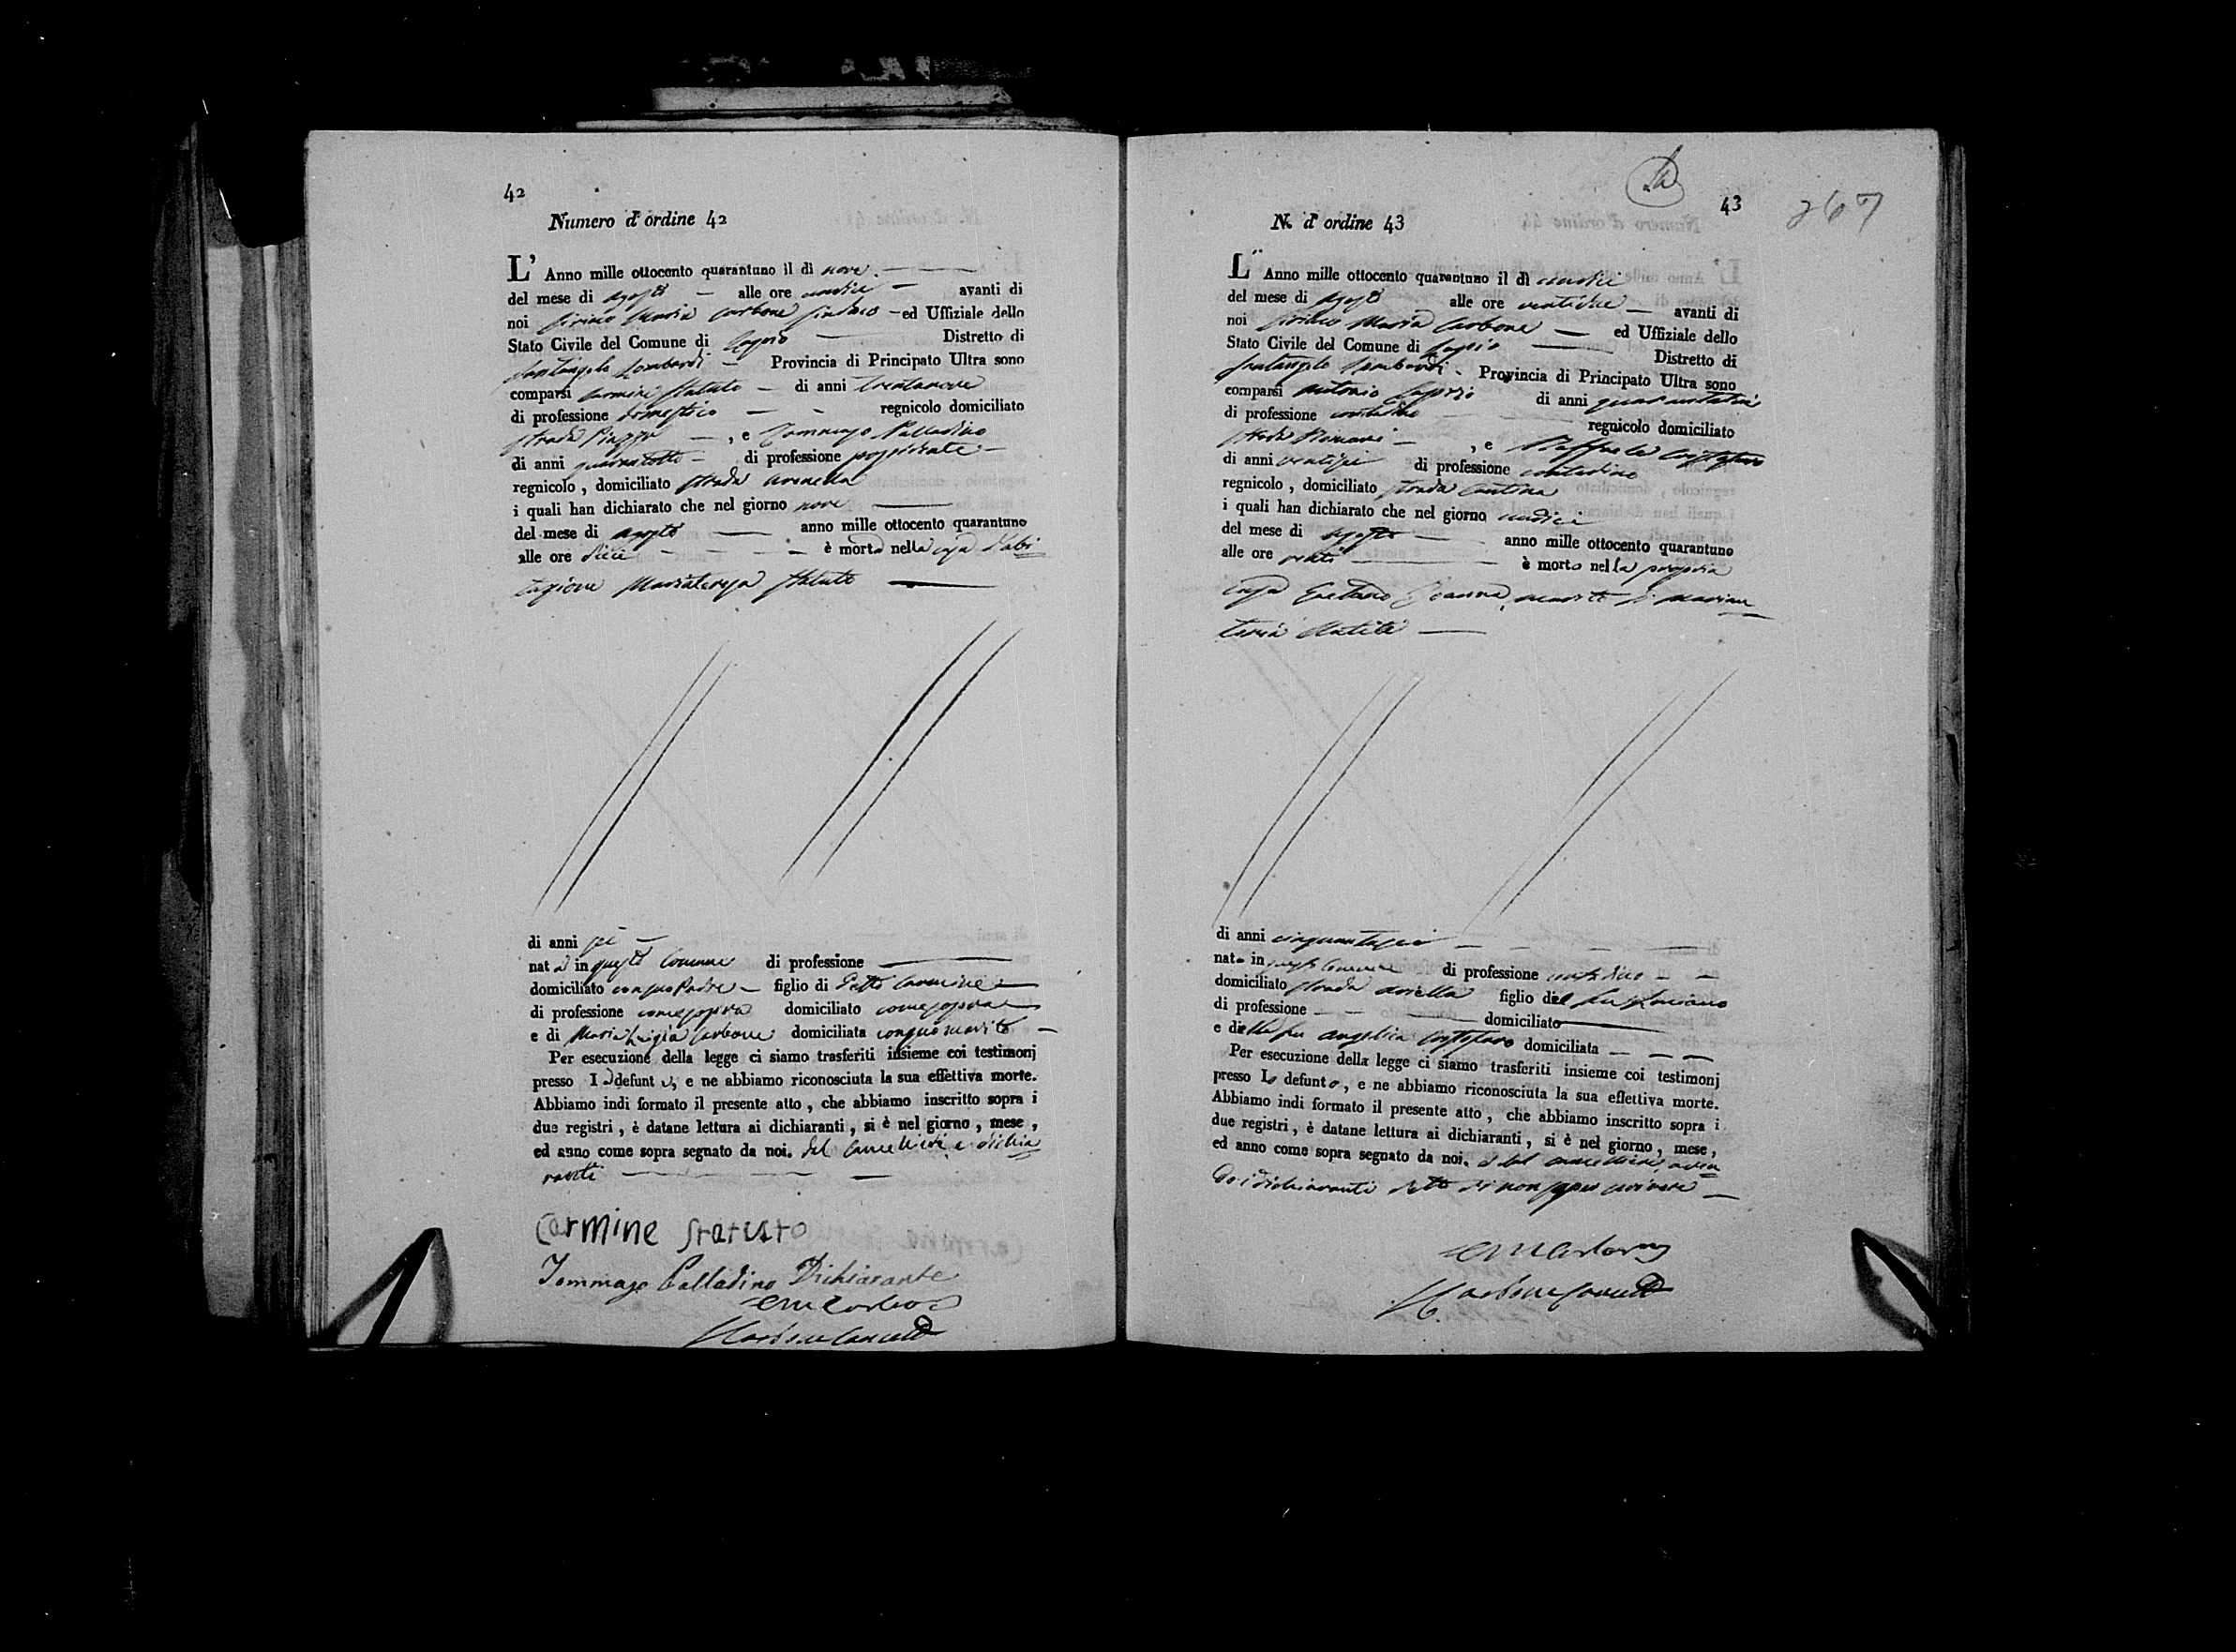 42
Numero d'ordine 42
L' Anno mille ottocento quarantuno il dì nove
del mese di agosto alle ore undici avanti di
noi Maria Carbone Sindaco ed Uffiziale dello
Stato Civile del Comune di Distretto di
Santangelo Lombardi Provincia di Principato Ultra sono
comparsi Carmine Statuto di anni trentanove
di professione domestico regnicolo domiciliato
strada Piazza , e Tommaso Palladino
di anni quarantotto di professione possidente
regnicolo , domiciliato strada
i quali han dichiarato che nel giorno nove
del mese di agosto anno mille ottocento quarantuno
alle ore dieci è morta nella casa d'abi
tazione Mariateresa Statuto
di anni sei
nata in questo Comune di professione
domiciliato con suo Padre figlio di Detto Carmine
di professione come sopra domiciliato come sopra
e di Maria Luigia Carbone domiciliata con suo marito
Per esecuzione della legge ci siamo trasferiti insieme coi testimonj
presso la defunta, e ne abbiamo riconosciuta la sua effettiva morte.
Abbiamo indi formato il presente atto , che abbiamo inscritto sopra i
due registri , è datane lettura ai dichiaranti , si è nel giorno , mese ,
ed anno come sopra segnato da noi. dal Cancelliere e dichia
ranti
Carmine Statuto
Tommaso Palladino Dichiarante
43
267
N. d'ordine 43
L' Anno mille ottocento quarantuno il dì undici
del mese di agosto alle ore ventidue avanti di
noi Maria Carbone ed Uffiziale dello
Stato Civile del Comune di Distretto di
Santangelo Lombardi Provincia di Principato Ultra sono
comparsi Antonio di anni
di professione contadino regnicolo domiciliato
strada , e Raffaele
di anni ventisei di professione contadino
regnicolo , domiciliato strada Cantina
i quali han dichiarato che nel giorno undici
del mese di agosto anno mille ottocento quarantuno
alle ore venti è morto nella propria
casa Gaetano marito di Marian
tonia
di anni cinquantasei
nato in questo Comune di professione contadino
domiciliato strada figlio del fu Luciano
di professione domiciliato
e della fu Angelica domiciliata
Per esecuzione della legge ci siamo trasferiti insieme coi testimonj
presso lo defunto , e ne abbiamo riconosciuta la sua effettiva morte.
Abbiamo indi formato il presente atto , che abbiamo inscritto sopra i
due registri , è datane lettura ai dichiaranti , si è nel giorno , mese ,
ed anno come sopra segnato da noi. e dal Cancelliere, aven
do i dichiaranti detto di non saper scrivere